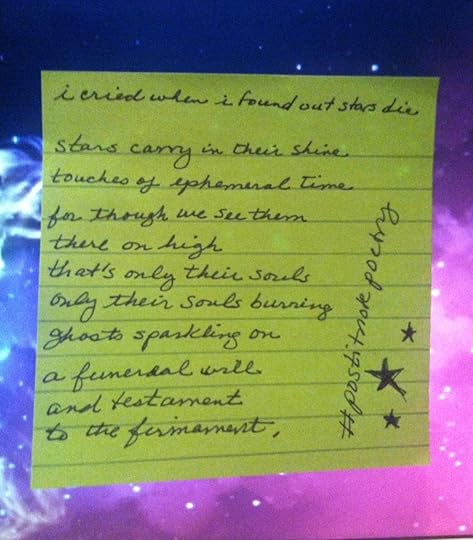 i cried when i found out stars die
stars carry in their shine
touches of ephemeral time
for though we see them
there on high
that's only their souls
only their souls burning
ghosts sparkling on
a funereal will
and testament
to the firmament.
#postitnotepoetry